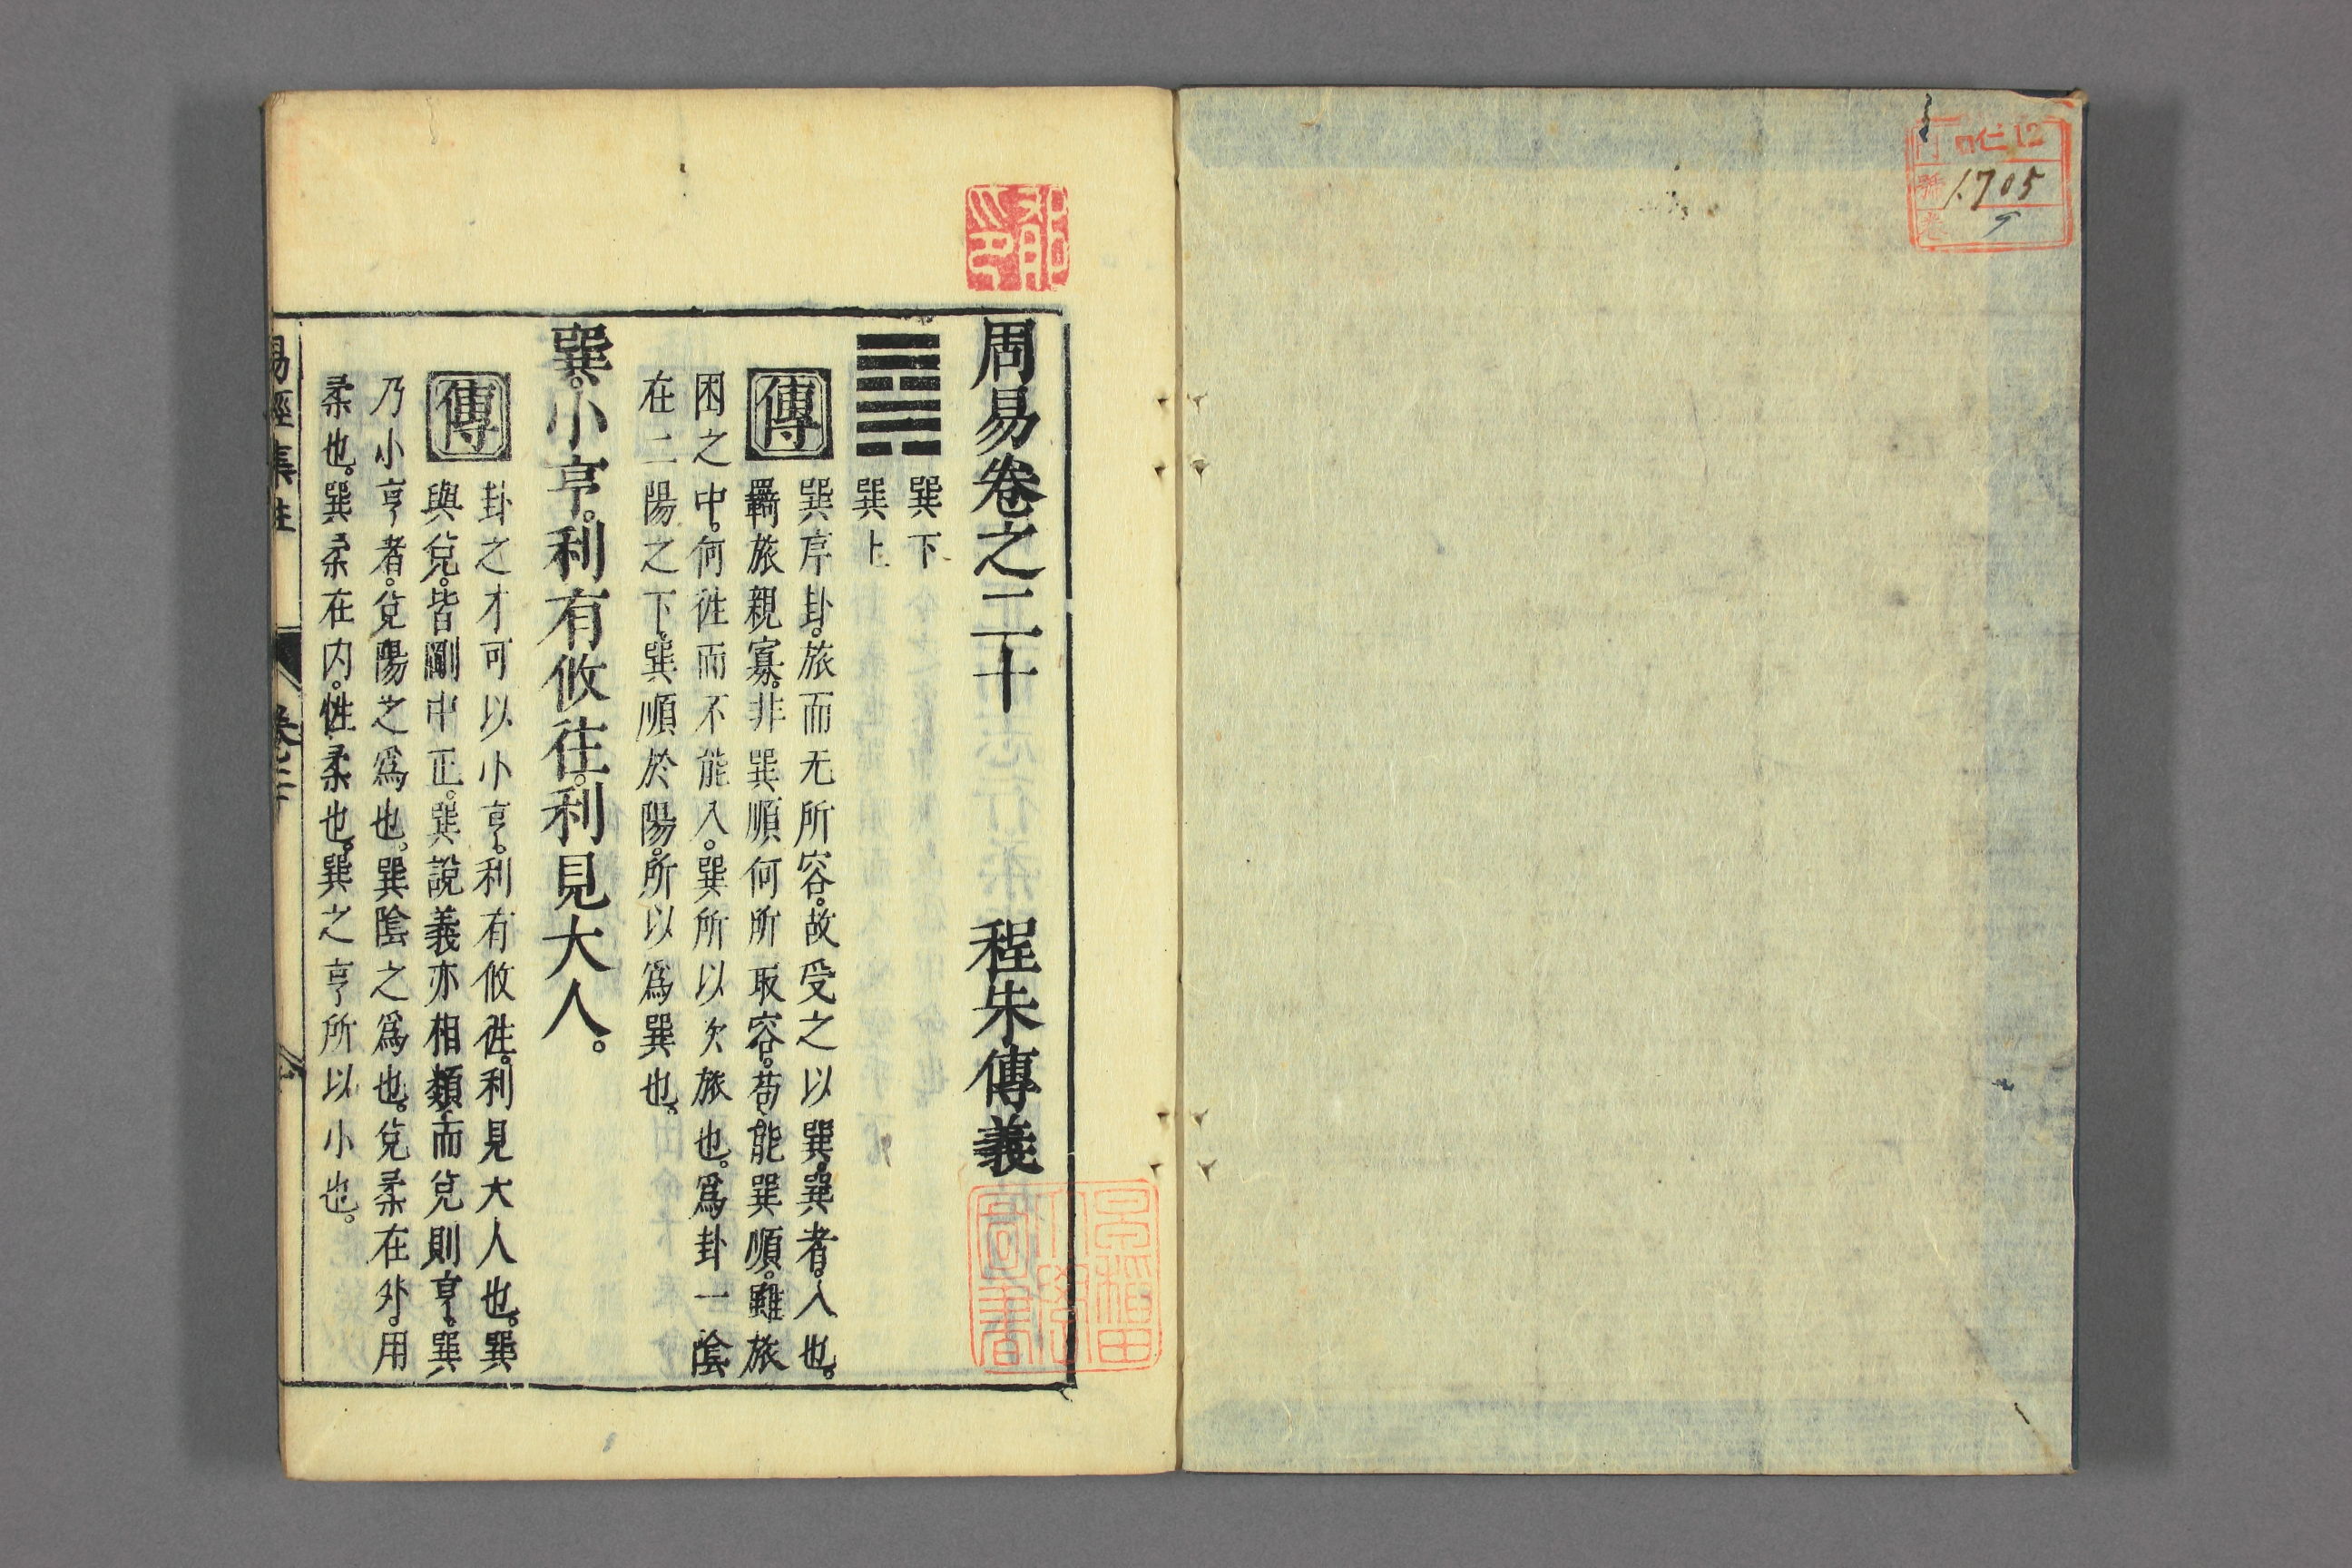 仁12
門
1705
號
卷
周易卷之二十 程朱傳義
巽下
巽上
傳 巽序卦。旅而无所容。故受之以巽。巽者。入也。
羈旅親寡。非巽順何所取容。苟能巽順。雖旅
困之中。何徃而不能入。巽所以次旅也。爲卦一陰
在二陽之下。巽順於陽。所以爲巽也。
巽。小亨。利有攸往。利見大人。
傳 卦之才可以小亨。利有攸徃。利見大人也。巽
與兌。皆剛中正。巽說義亦相類。而兌則亨。巽
乃小亨者。兌陽之爲也。巽陰之爲也。兌柔在外。用
柔也。巽柔在内。性柔也。巽之亨所以小也。
易經集註 卷二十
早稻田
大學
圖書